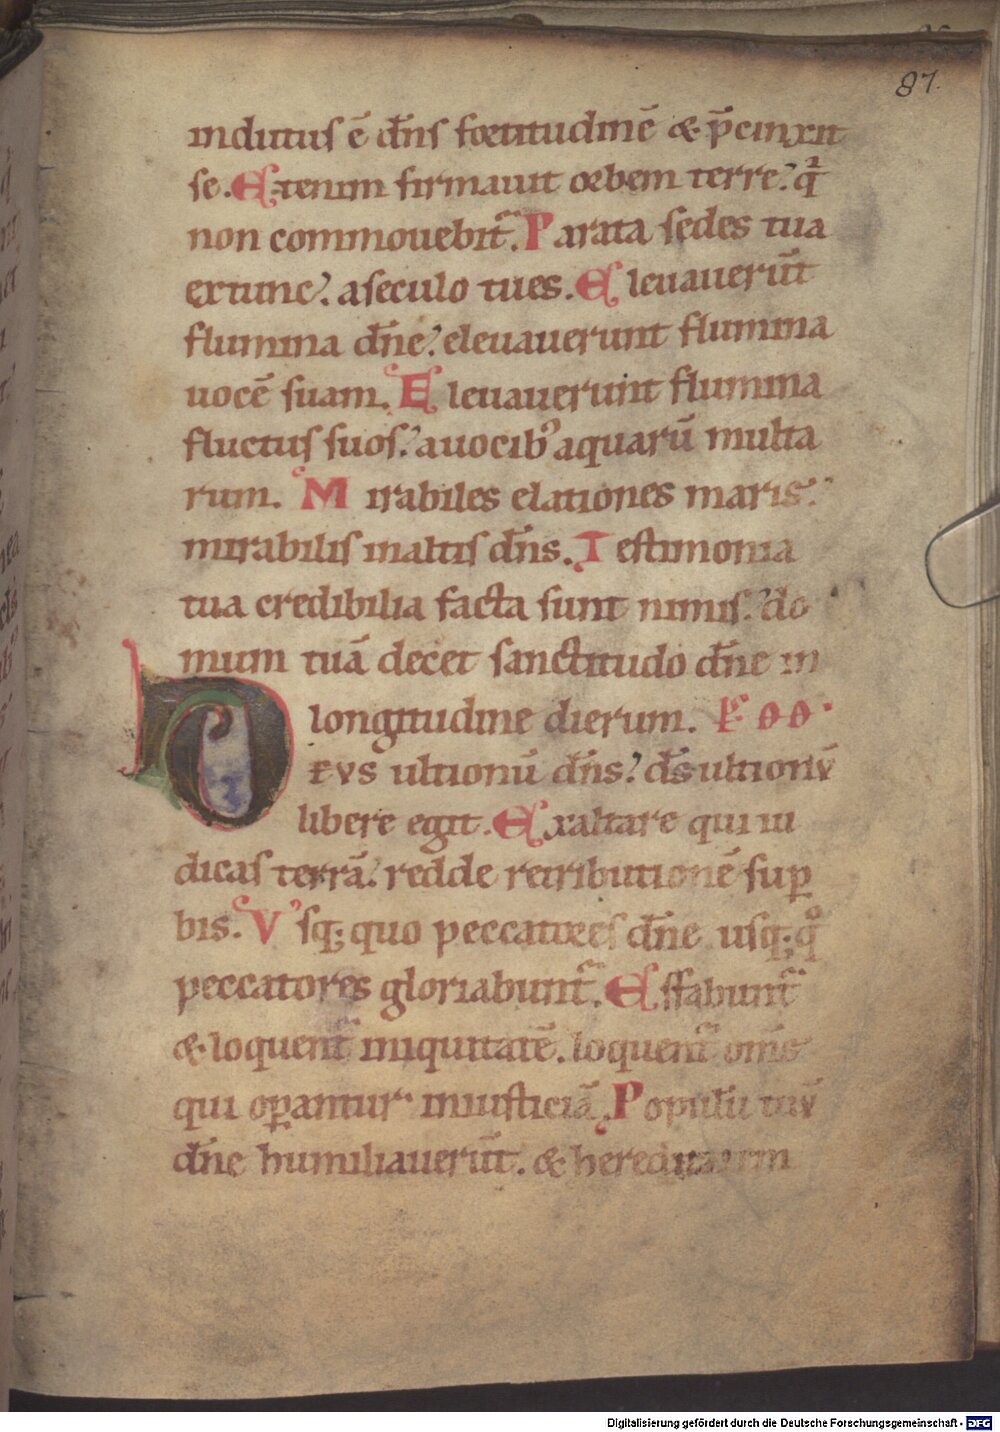 87.
indutus ē dn̄s fortitudinē & p̄cinxit
se. Etenim firmauit orbem terre? q̄
non commouebit᷑. Parata sedes tua
extunc? aseculo tues. Eleuauerūt
flumina dn̄e? eleuauerunt flumina
uocē suam. Eleuauerunt flumina
fluctus suos? auocib᾽ aquarū multa
rum. Mirabiles elationes maris?
mirabilis inaltis dn̄s. Testimonia
tua credibilia facta sunt nimis? do
mum tuā decet sanctitudo dn̄e in
longitudine dierum.
DEVS ultionū dn̄s? ds̄ ultionū
libere egit. Exaltare qui iu
dicas terrā? redde retributionē suꝑ
bis. Vsq; quo peccatores dn̄e usq; qͦ
peccatores gloriabunt᷑. Effabunt᷑
& loquent᷑ iniquitatē. loquent᷑ om̄s
qui oꝑantur iniusticiā. Populū tuū
dn̄e humiliauerūt. & hereditatem
Digitalisierung gefördert durch die Deutsche Forschungsgemeinschaft - DFG